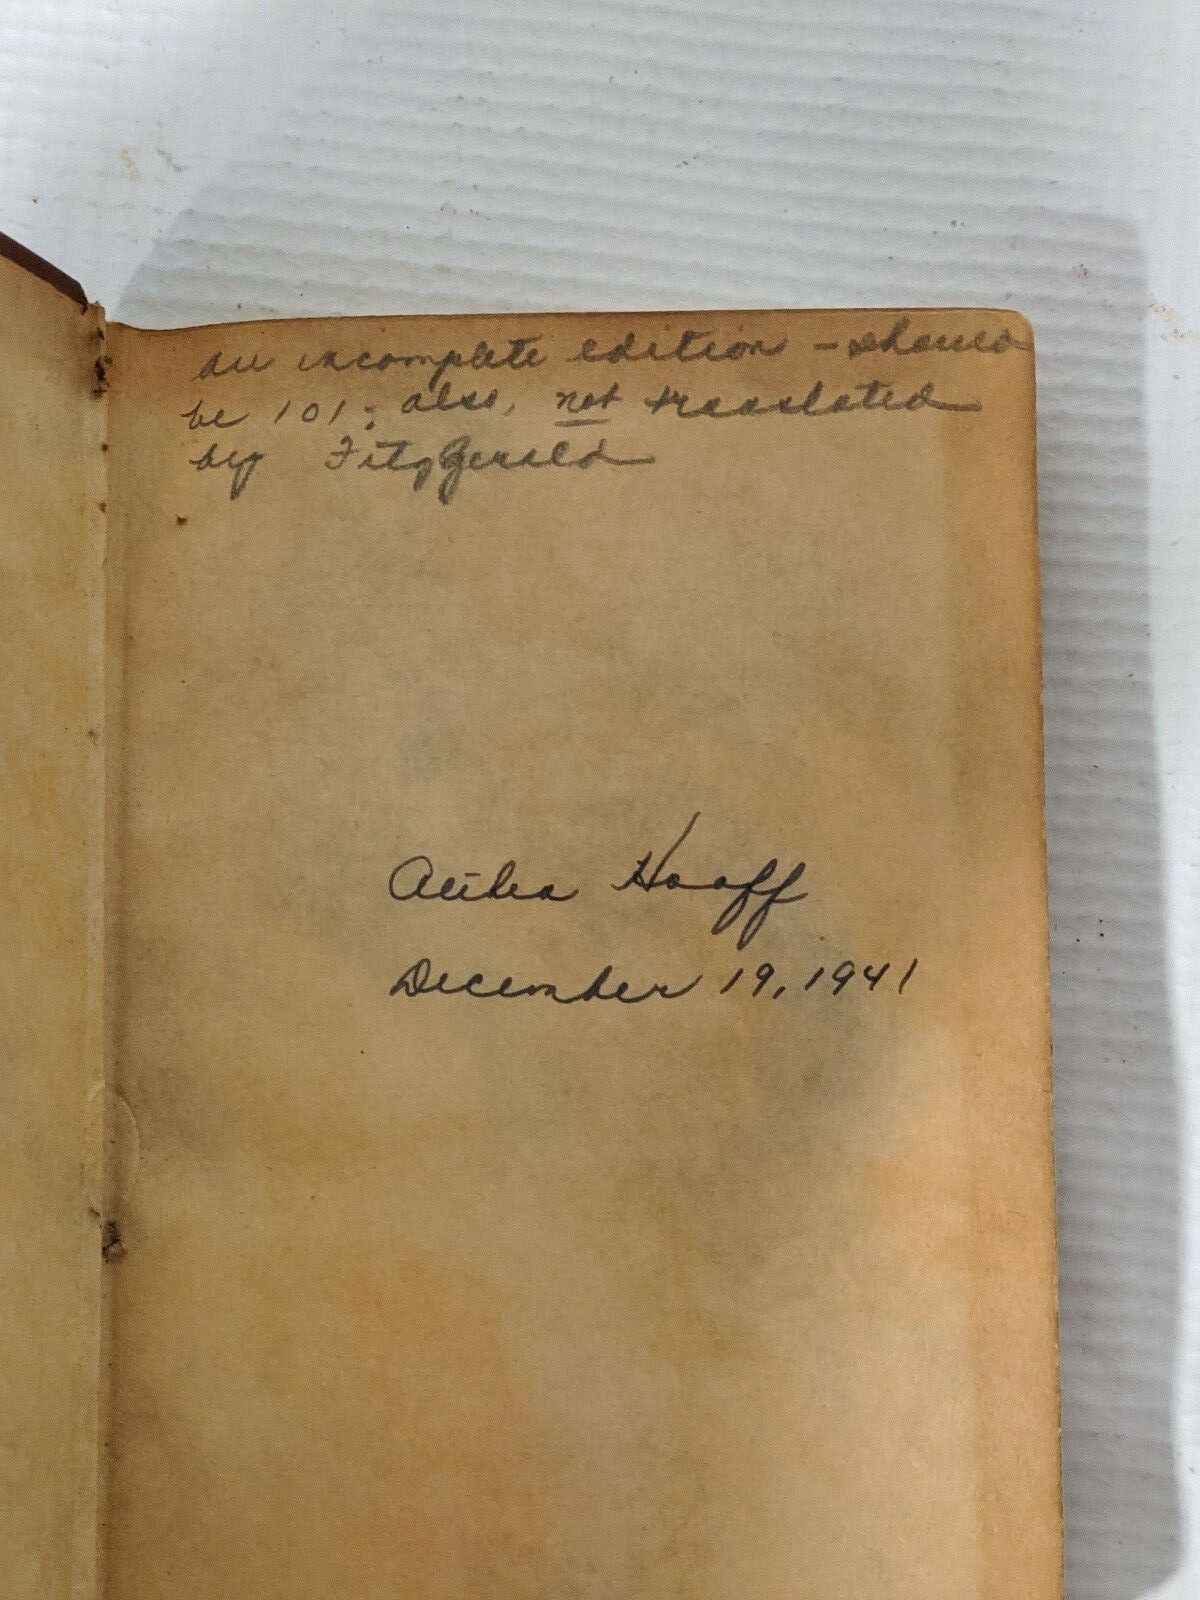 an incomplete edition – should
be 101; also, not translated
by FitzGerald
Hooff
December 19, 1941